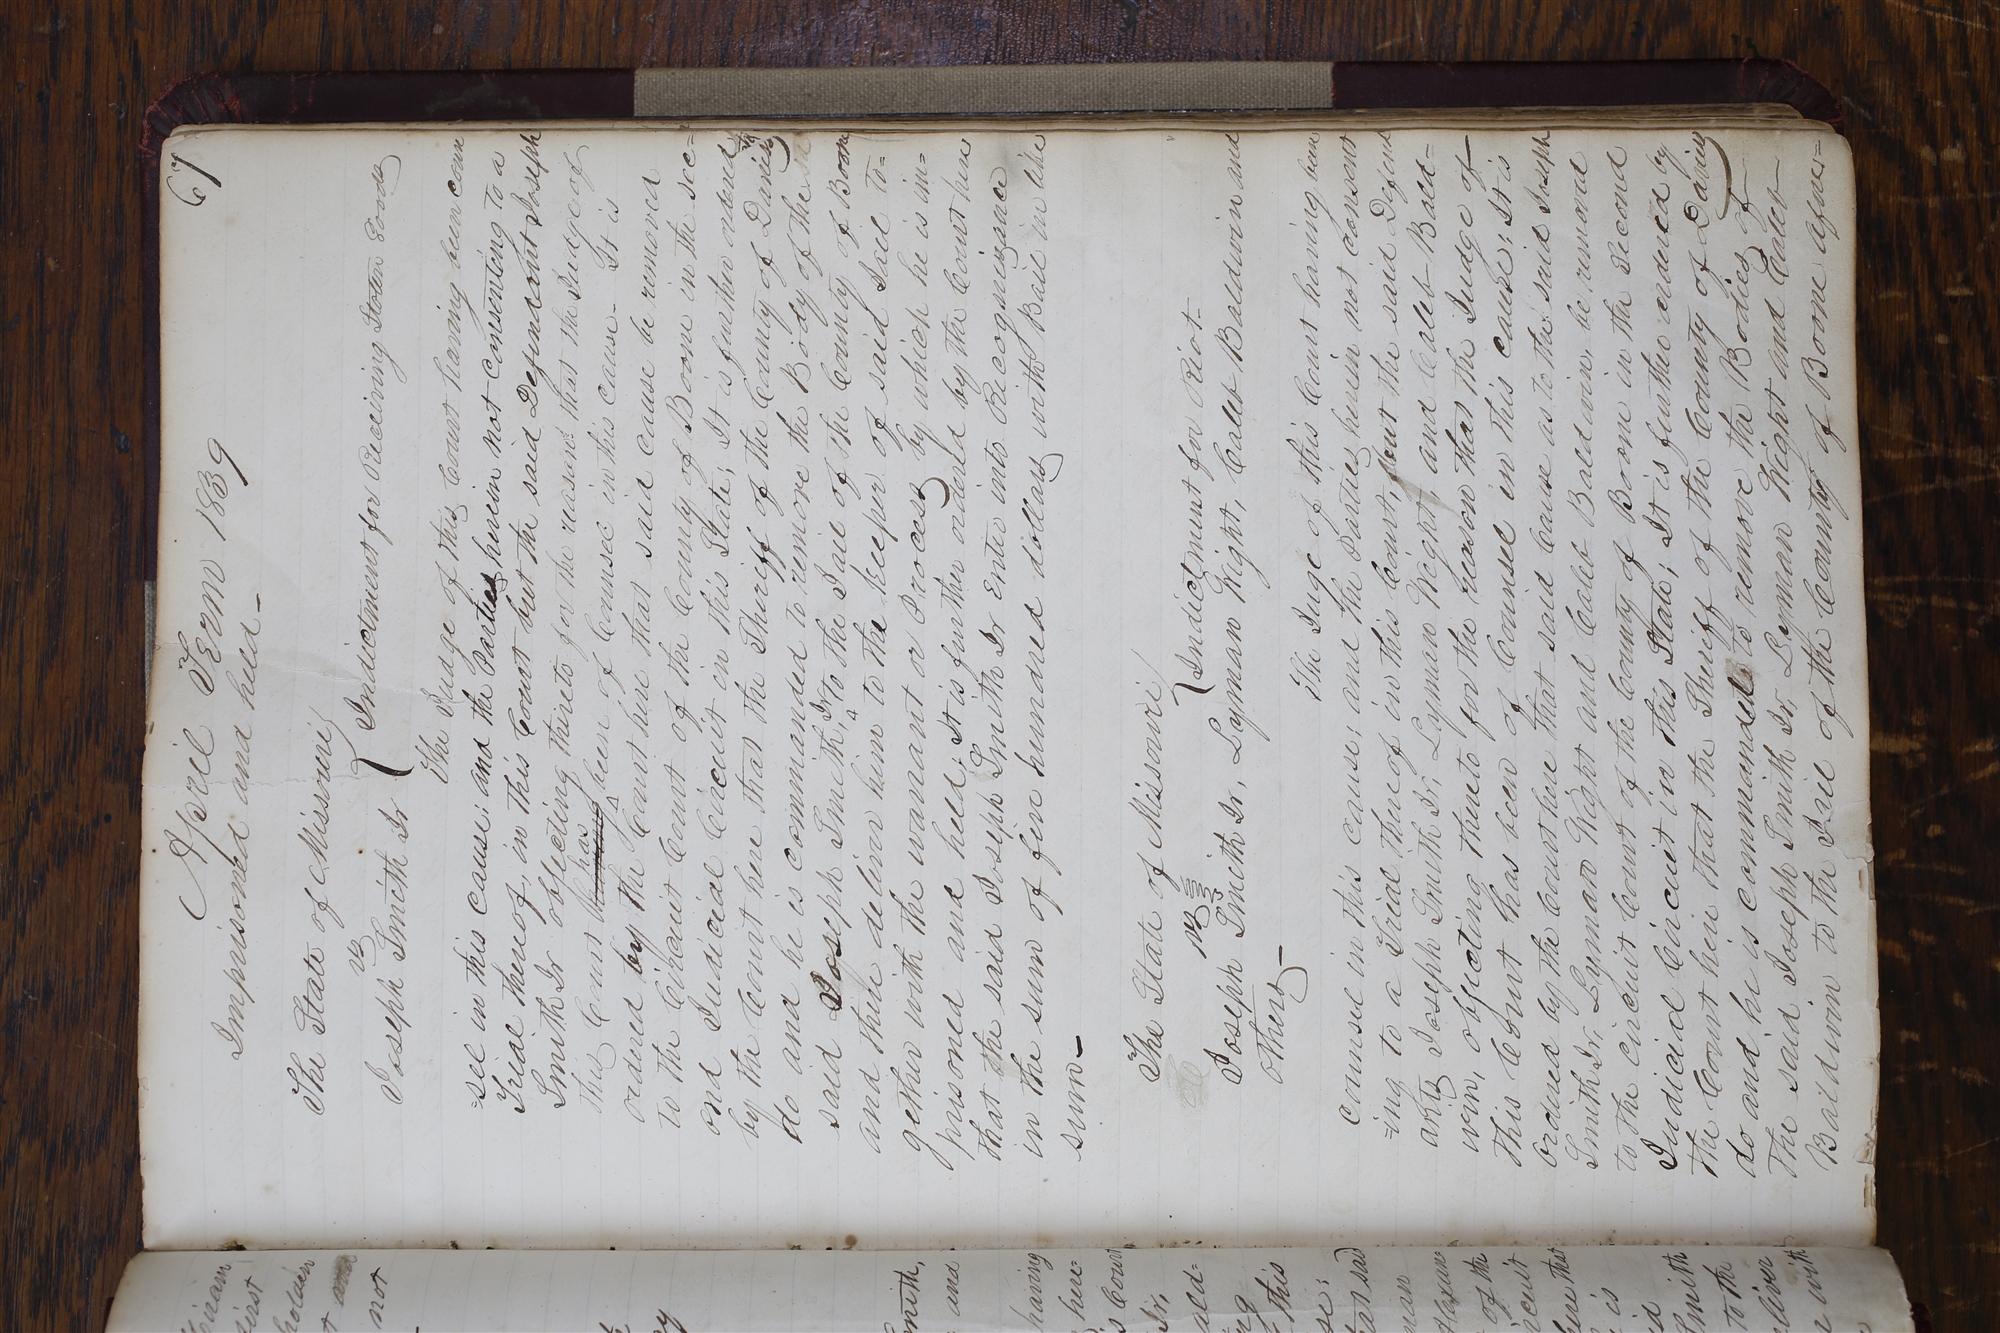 67
April Term 1839
Imprisoned and held –
The State of Missouri
vs
Indictment for Receiving Stolen Goods
Joseph Smith Jr
The Judge of this Court having been coun
=sel in this cause: and the Parties herein not consenting to a
Trial thereof, in this Court but the said Defendant Joseph
Smith Jr objecting thereto for the reason that the Judge of
this Court has been of Counsel in this cause – It is
ordered by the Court here that said cause be removed
to the Circuit Court of the County of Boone in the sec=
ond Judicial Circuit in this State, It is further ordered
by the Court here that the Sheriff of the County of Daviess
do and he is commanded to remove the Body of the
said Joseph Smith Jr to the Jail of the County of Boone
and there deliver him to the keeper of said Jail to=
gether with the warrant or Process by which he is im=
prisoned and held; It is further ordered by the Court here
that the said Joseph Smith Jr enter into Recognizance
in the sum of five hundred dollars with Bail in like
sum –
The State of Missouri
vs
Indictment for Riot –
Joseph Smith Jr, Lyman Wight, Caleb Baldwin and
others –
The Juge of this Court having been
counsel in this cause; and the Parties herein not consent
=ing to a Trial thereof in this Court, but the said Defend
ants Joseph Smith Jr, Lyman Wight and Caleb Bald=
win, objecting thereto for the reason that the Judge of
this Court has been of Counsel in this cause; It is
ordered by the Court here that said cause as to the said Joseph
Smith Jr, Lyman Wight and Caleb Baldwin be removed
to the Circuit Court of the County of Boone in the second
Judicial Circuit in this State; It is further ordered by
the Court here that the Sheriff of the County of Daviess
do and he is commanded to remove the Bodies of
the said Joseph Smith Jr, Lyman Wight and Caleb
Baldwin to the Jail of the County of Boone afore=
first
not
and
having
here=
Court
Jr,
ald=
this
of the
circuit
here that
is
Smith
to the
deliver
with